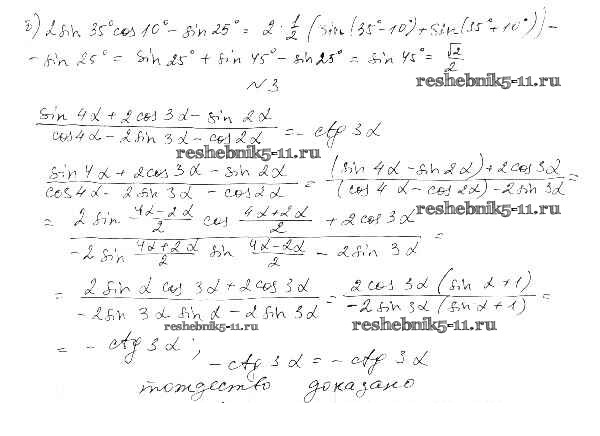 б) 2 sin 35° cos 10° - sin 25° = 2 · 1/2 (sin (35° - 10°) + sin (35° + 10°)) -
- sin 25° = sin 25° + sin 45° - sin 25° = sin 45° = √2/2
reshebnik5-11.ru
№ 3
(sin 4α + 2 cos 3α - sin 2α)/(cos 4α - 2 sin 3α - cos 2α) = - ctg 3α
reshebnik5-11.ru
(sin 4α + 2 cos 3α - sin 2α)/(cos 4α - 2 sin 3α - cos 2α) = ((sin 4α - sin 2α) + 2 cos 3α)/((cos 4α - cos 2α) - 2 sin 3α) =
reshebnik5-11.ru
= (2 sin (4α - 2α)/2 cos (4α + 2α)/2 + 2 cos 3α)/(-2 sin (4α + 2α)/2 sin (4α - 2α)/2 - 2 sin 3α) =
= (2 sin α cos 3α + 2 cos 3α)/(-2 sin 3α sin α - 2 sin 3α) = (2 cos 3α (sin α + 1))/(-2 sin 3α (sin α + 1)) =
reshebnik5-11.ru
reshebnik5-11.ru
= - ctg 3α ;
- ctg 3α = - ctg 3α
тождество доказано